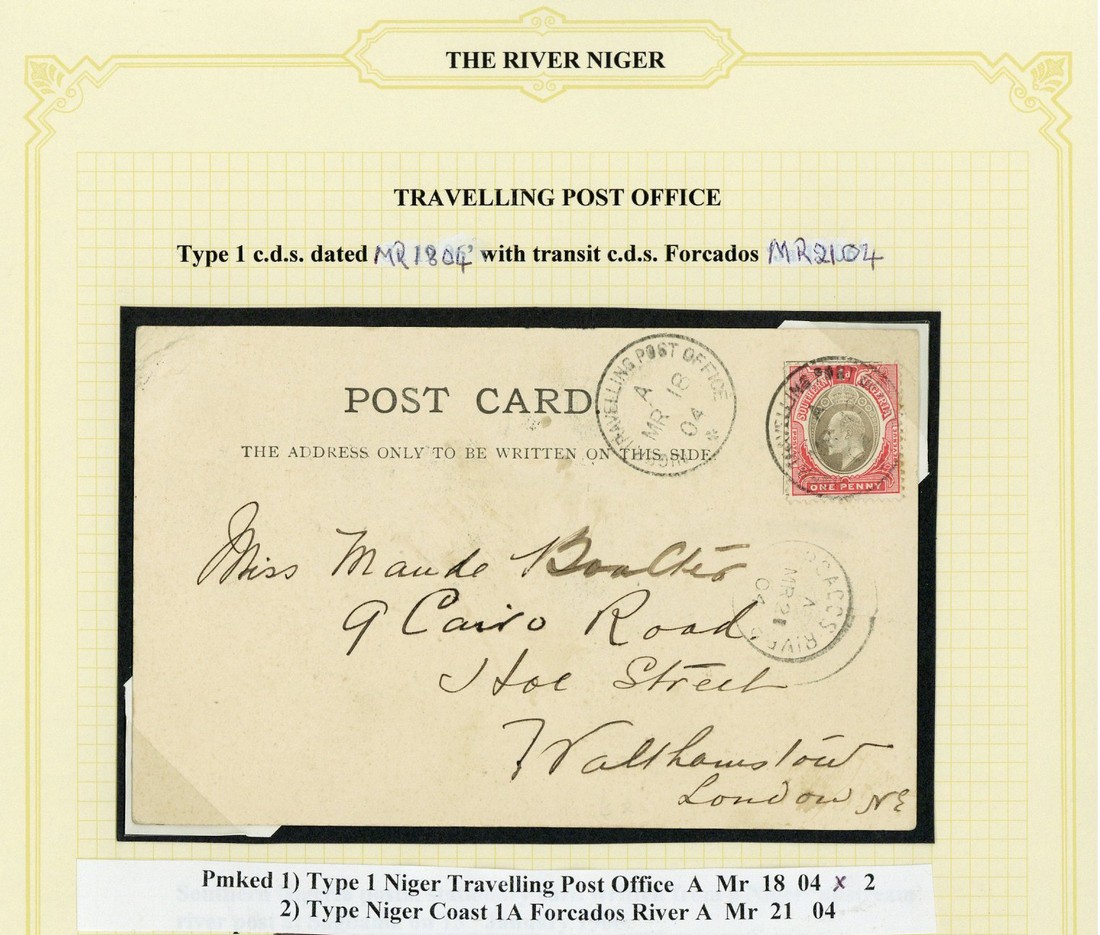 THE RIVER NIGER
TRAVELLING POST OFFICE
Type 1 c.d.s. dated MR 18 04 with transit c.d.s. Forcados MR 21 04
POST CARD
THE ADDRESS ONLY TO BE WRITTEN ON THIS SIDE.
TRAVELLING POST OFFICE
A
MR 18
04
TRAVELLING POS
SOUTHERN NIGERIA
ONE PENNY
Miss Maude Boulter
9 Cairo Road
Hoe Street
Walthamstow
London NE
RCADOS RIVE
A
MR 21
04
Pmked 1) Type 1 Niger Travelling Post Office A Mr 18 04 x 2
2) Type Niger Coast 1A Forcados River A Mr 21 04